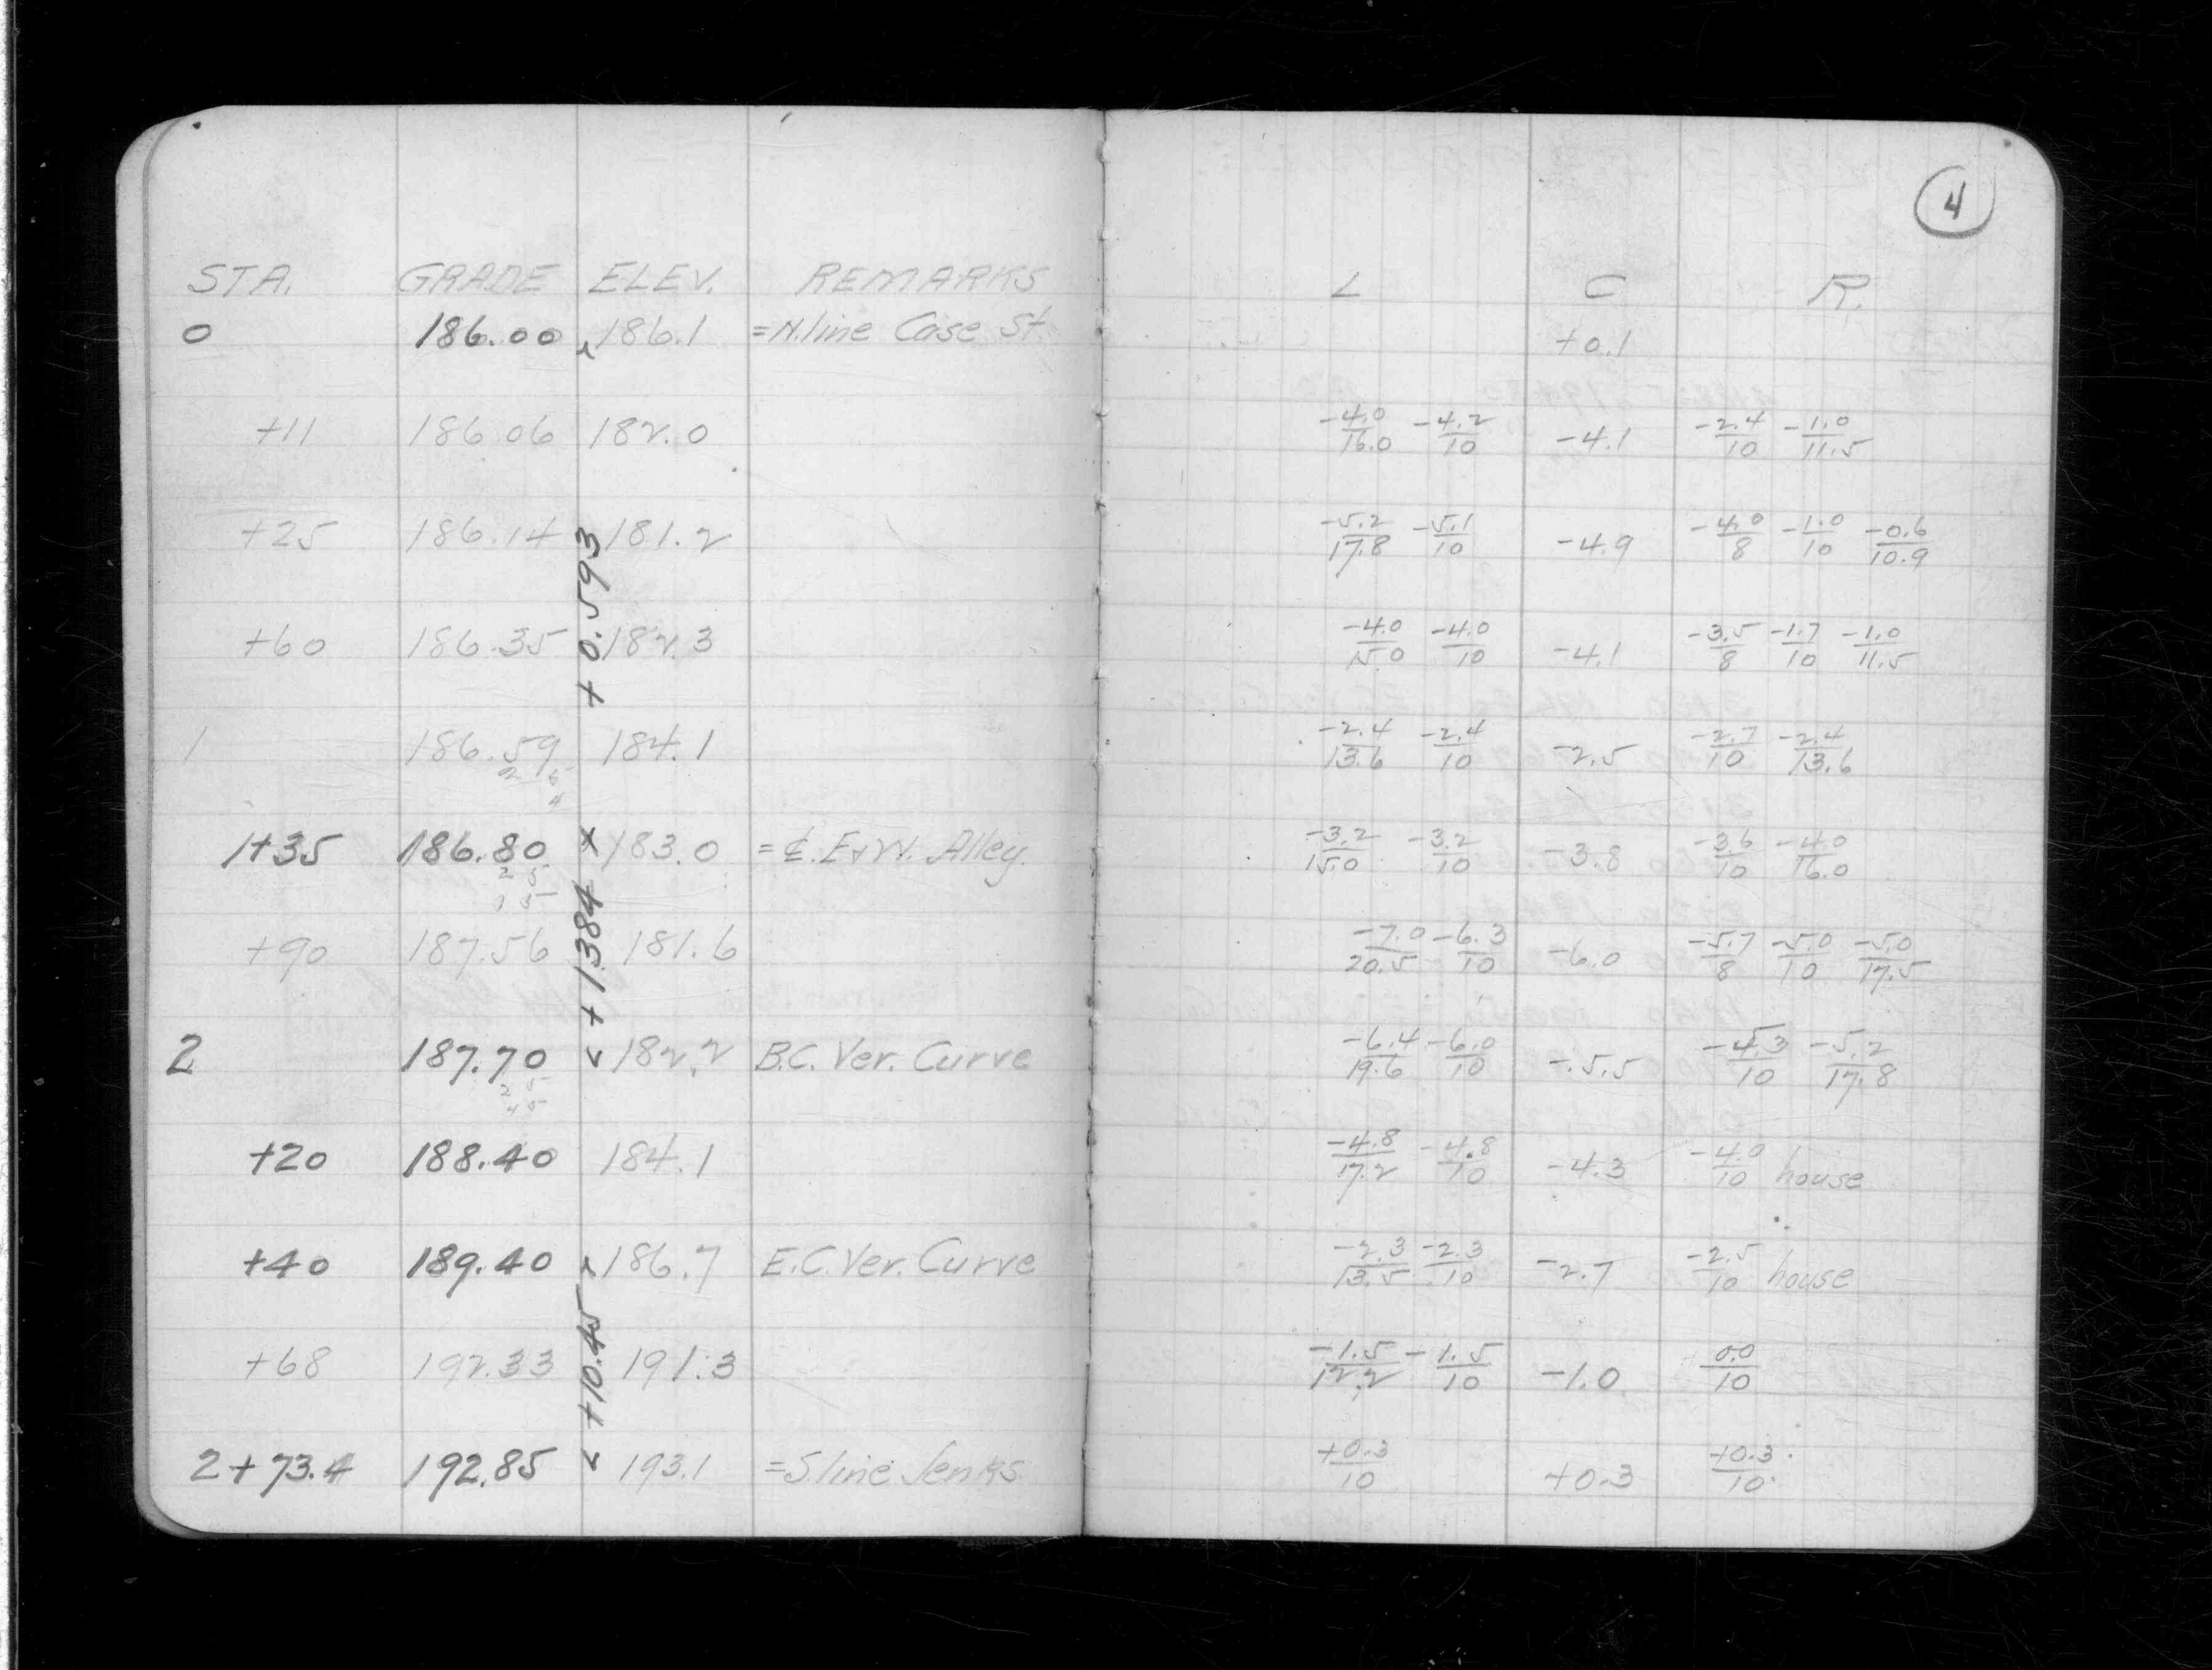 4
STA. GRADE ELEV. REMARKS L C R.
0 186.00 186.1 =N.line Case St. +0.1
+11 186.06 182.0 -4.0/16.0 -4.2/10 -4.1 -2.4/10 -1.0/11.5
+25 186.14 181.2 -5.2/17.8 -5.1/10 -4.9 -4.0/8 -1.0/10 -0.6/10.9
+0.593
+60 186.35 182.3 -4.0/15.0 -4.0/10 -4.1 -3.5/8 -1.7/10 -1.0/11.5
1 186.59 184.1 -2.4/13.6 -2.4/10 -2.5 -2.7/10 -2.4/13.6
1+35 186.80 183.0 =℄.E+W. Alley. -3.2/15.0 -3.2/10 -3.8 -3.6/10 -4.0/16.0
+1.384
+90 187.56 181.6 -7.0/20.5 -6.3/10 -6.0 -5.7/8 -5.0/10 -5.0/17.5
2 187.70 182.2 B.C. Ver. Curve -6.4/19.6 -6.0/10 -5.5 -4.3/10 -5.2/17.8
+20 188.40 184.1 -4.8/17.2 -4.8/10 -4.3 -4.0/10 house
+40 189.40 186.7 E.C. Ver. Curve -2.3/13.5 -2.3/10 -2.7 -2.5/10 house
+10.45
+68 192.33 191.3 -1.5/12.2 -1.5/10 -1.0 0.0/10
2+73.4 192.85 193.1 =S.line Jenks +0.3/10 +0.3 +0.3/10